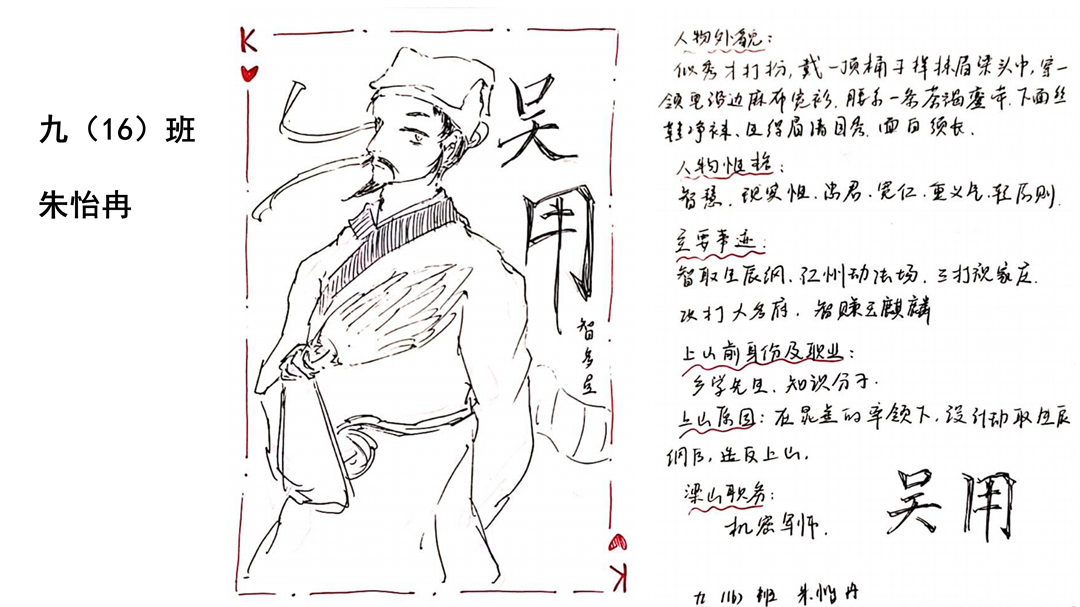 九（16）班
朱怡冉
K
吴
用
智多星
K
人物外貌：
似秀才打扮，戴一顶桶子样抹眉梁头巾，穿一
领皂沿边麻布宽衫，腰系一条茶褐銮带，下面丝
鞋净袜、生得眉清目秀，面白须长．
人物性格：
智慧、现实性、忠君、宽仁、重义气、轻原则．
主要事迹：
智取生辰纲、江州劫法场、三打祝家庄．
攻打大名府、智赚玉麒麟
上山前身份及职业：
乡学先生、知识分子．
上山原因：在晁盖的率领下，设计劫取生辰
纲后，造反上山．
梁山职务：
机密军师．
吴用
九（16）班 朱怡冉